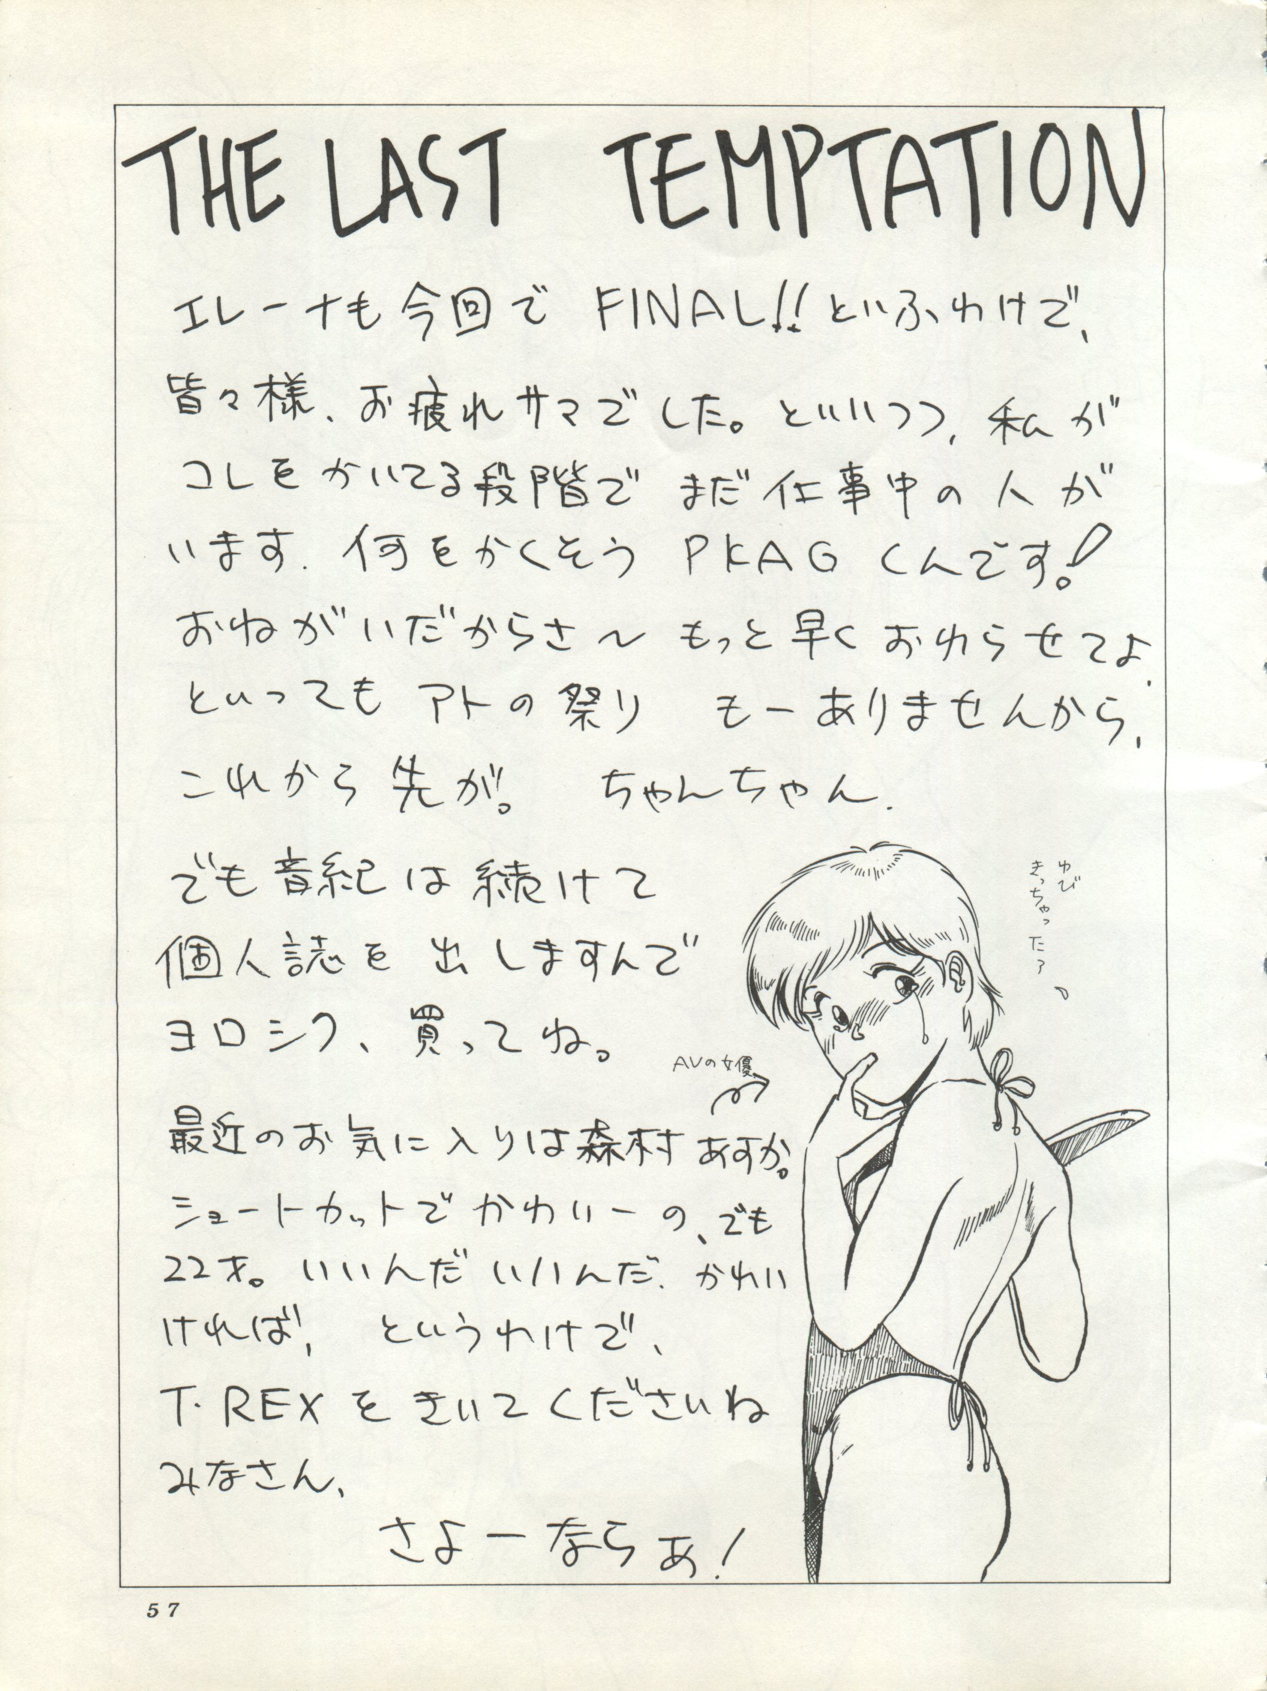 THE LAST TEMPTATION
エレーナも今回で FINAL!! といふわけで、
皆々様、お疲れサマでした。といいつつ、私が
コレをかいてる段階で まだ仕事中の人が
います. 何をかくそう PKAGくんです!
おねがいだからさ〜 もっと早くおわらせてよ.
といってもアトの祭り もーありませんから、
これから先が。 ちゃんちゃん.
でも音紀は続けて
個人誌を出しますんで
ヨロシク、買ってね。
ゆび
きっちゃったァ
AVの女優
最近のお気に入りは森村あすか。
ショートカットでかわいーの、でも
22才。いいんだいいんだ. かわい
ければ、 というわけで、
T・REXをきいてくださいね
みなさん、
さよーならぁ!
57